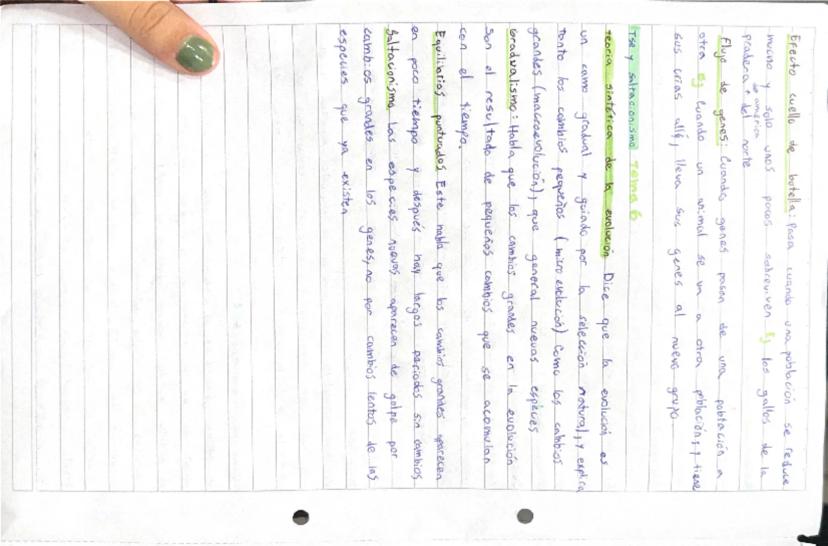 Efecto cuello de botella: Pasa cuando una población se reduce
mucho y solo unos pocos sobreviven Ej los gallos de la
pradera de america del norte
Flujo de genes: Cuando genes pasan de una población a
otra Ej Cuando un animal se va a otra población, y tiene
sus crias allí, lleva sus genes al nuevo grupo
TSE y saltacionismo Tema 6
Teoria sintética de la evolución Dice que la evolución es
un camo gradual y guiado por la selección natural, y explica
tanto los cambios pequeños (micro evolución) Como los cambios
grandes (macroevolución), que general nuevas especies
Gradualismo: Habla que los cambios grandes en la evolución
Son el resultado de pequeños cambios que se acomulan
con el tiempo.
Equilibrios puntuados Este habla que los cambios grandes aparecen
en poco tiempo y después hay largos periodos sin cambios
Saltacionismo Las especies nuevas aparecen de golpe por
cambios grandes en los genes, no por cambios lentos de las
especies que ya existen